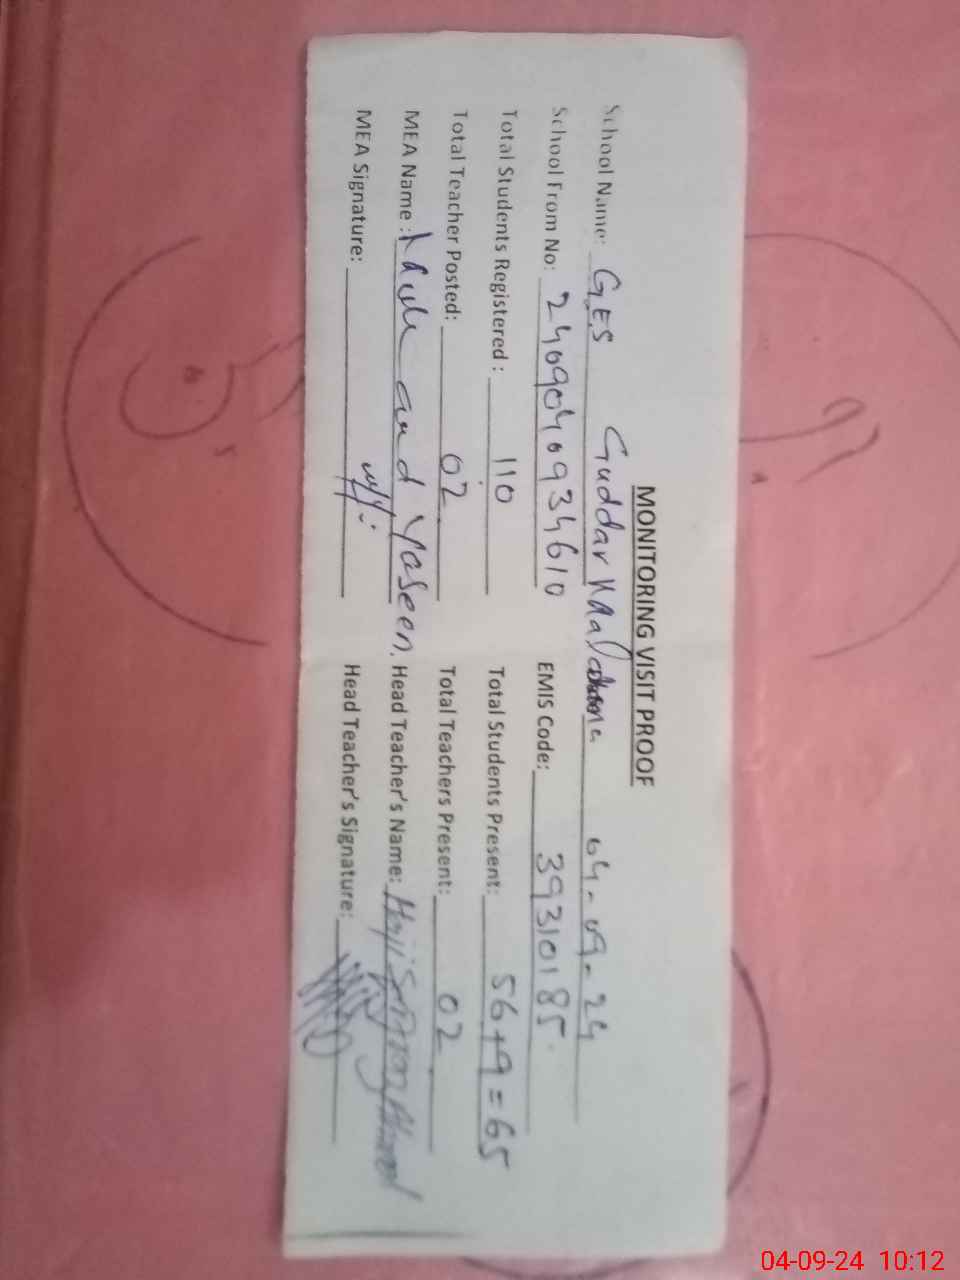 MONITORING VISIT PROOF
School Name: G.ES Guddar 04-09-24
School From No: 2409040934610 EMIS Code: 39310185
Total Students Registered : 110 Total Students Present: 56+9=65
Total Teacher Posted: 02 Total Teachers Present: 02
MEA Name : Yaseen. Head Teacher's Name: Haji Ahmed
MEA Signature: Head Teacher's Signature:
04-09-24 10:12